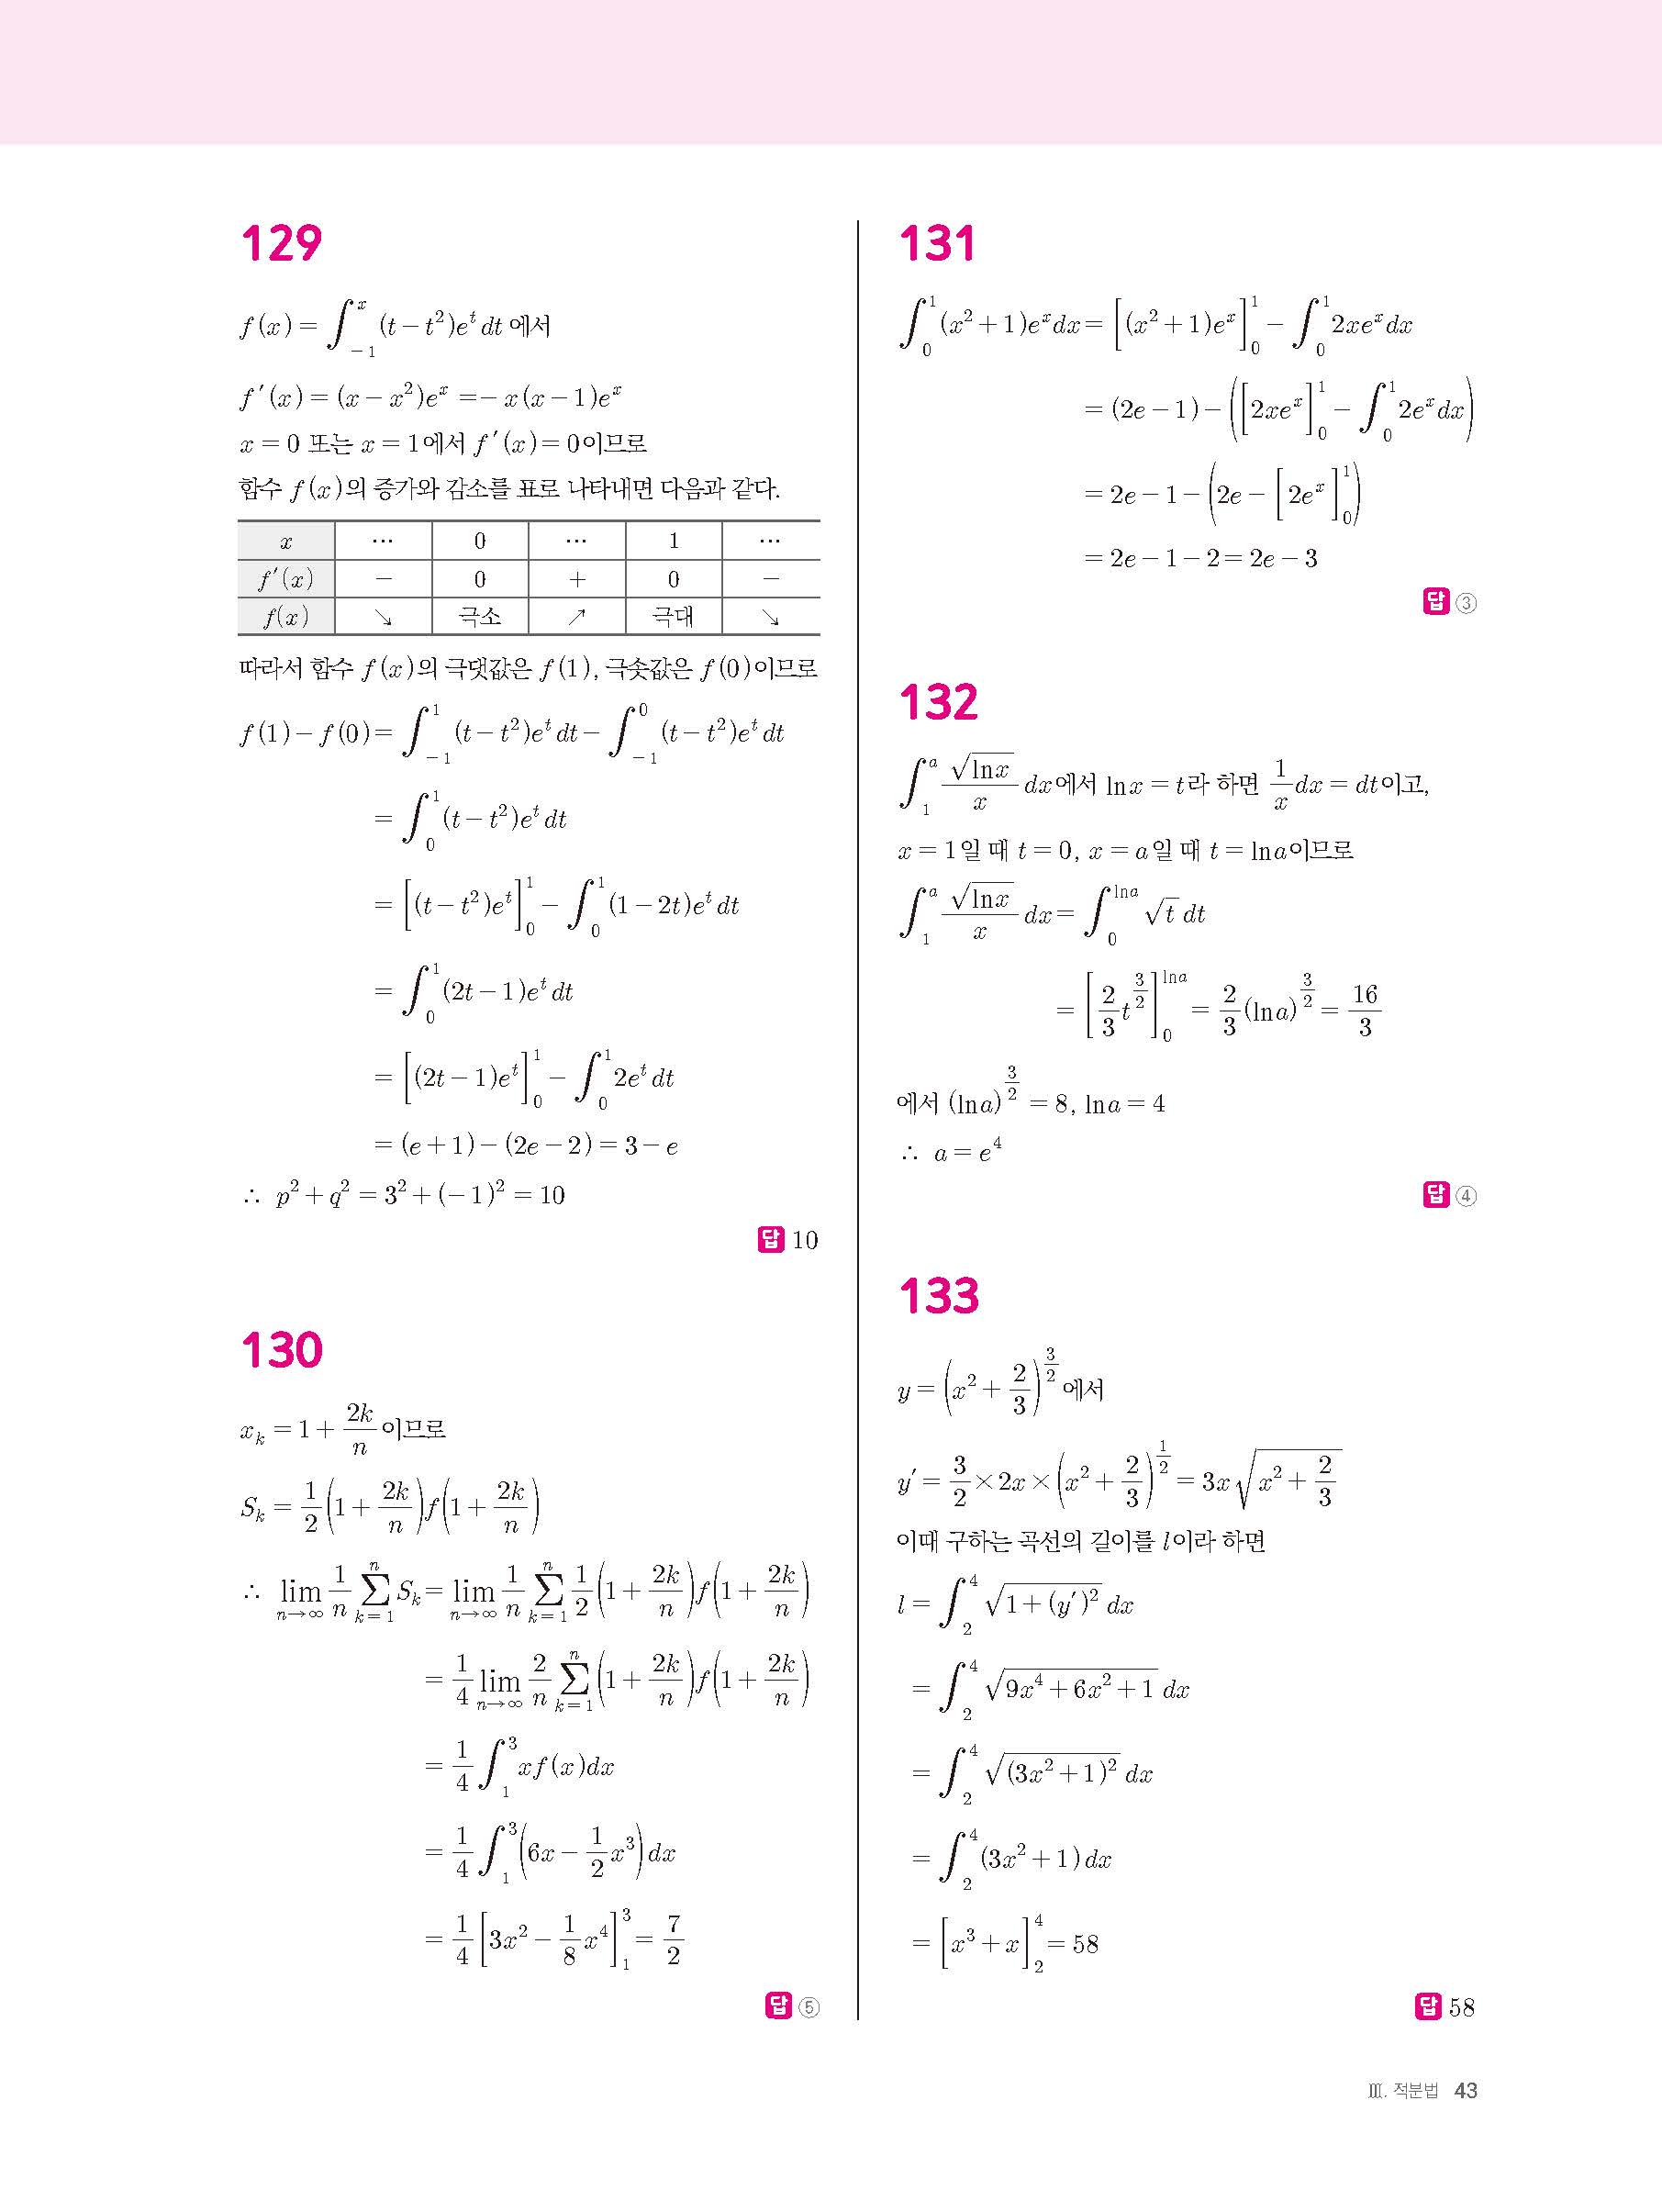 129
f(x) = ∫_{-1}^{x} (t-t²)e^t dt 에서
f′(x) = (x-x²)e^x = -x(x-1)e^x
x = 0 또는 x = 1에서 f′(x) = 0이므로
함수 f(x)의 증가와 감소를 표로 나타내면 다음과 같다.
x ⋯ 0 ⋯ 1 ⋯
f′(x) - 0 + 0 -
f(x) ↘ 극소 ↗ 극대 ↘
따라서 함수 f(x)의 극댓값은 f(1), 극솟값은 f(0)이므로
f(1)-f(0) = ∫_{-1}^{1} (t-t²)e^t dt - ∫_{-1}^{0} (t-t²)e^t dt
= ∫_{0}^{1} (t-t²)e^t dt
= [(t-t²)e^t]_{0}^{1} - ∫_{0}^{1} (1-2t)e^t dt
= ∫_{0}^{1} (2t-1)e^t dt
= [(2t-1)e^t]_{0}^{1} - ∫_{0}^{1} 2e^t dt
= (e+1)-(2e-2) = 3-e
∴ p²+q² = 3²+(-1)² = 10
답 10
130
x_k = 1+\frac{2k}{n}이므로
S_k = \frac{1}{2}(1+\frac{2k}{n})f(1+\frac{2k}{n})
∴ lim_{n→∞} \frac{1}{n} ∑_{k=1}^{n} S_k = lim_{n→∞} \frac{1}{n} ∑_{k=1}^{n} \frac{1}{2}(1+\frac{2k}{n})f(1+\frac{2k}{n})
= \frac{1}{4} lim_{n→∞} \frac{2}{n} ∑_{k=1}^{n} (1+\frac{2k}{n})f(1+\frac{2k}{n})
= \frac{1}{4} ∫_{1}^{3} xf(x)dx
= \frac{1}{4} ∫_{1}^{3} (6x-\frac{1}{2}x³)dx
= \frac{1}{4} [3x²-\frac{1}{8}x⁴]_{1}^{3} = \frac{7}{2}
답 ⑤
131
∫_{0}^{1} (x²+1)e^x dx = [(x²+1)e^x]_{0}^{1} - ∫_{0}^{1} 2xe^x dx
= (2e-1)-([2xe^x]_{0}^{1} - ∫_{0}^{1} 2e^x dx)
= 2e-1-(2e-[2e^x]_{0}^{1})
= 2e-1-2 = 2e-3
답 ③
132
∫_{1}^{a} \frac{√(lnx)}{x} dx에서 lnx = t라 하면 \frac{1}{x}dx = dt이고,
x = 1일 때 t = 0, x = a일 때 t = lna이므로
∫_{1}^{a} \frac{√(lnx)}{x} dx = ∫_{0}^{lna} √t dt
= [\frac{2}{3}t^{\frac{3}{2}}]_{0}^{lna} = \frac{2}{3}(lna)^{\frac{3}{2}} = \frac{16}{3}
에서 (lna)^{\frac{3}{2}} = 8, lna = 4
∴ a = e⁴
답 ④
133
y = (x²+\frac{2}{3})^{\frac{3}{2}} 에서
y′ = \frac{3}{2}×2x×(x²+\frac{2}{3})^{\frac{1}{2}} = 3x√(x²+\frac{2}{3})
이때 구하는 곡선의 길이를 l이라 하면
l = ∫_{2}^{4} √(1+(y′)²) dx
= ∫_{2}^{4} √(9x⁴+6x²+1) dx
= ∫_{2}^{4} √((3x²+1)²) dx
= ∫_{2}^{4} (3x²+1)dx
= [x³+x]_{2}^{4} = 58
답 58
Ⅲ. 적분법 43